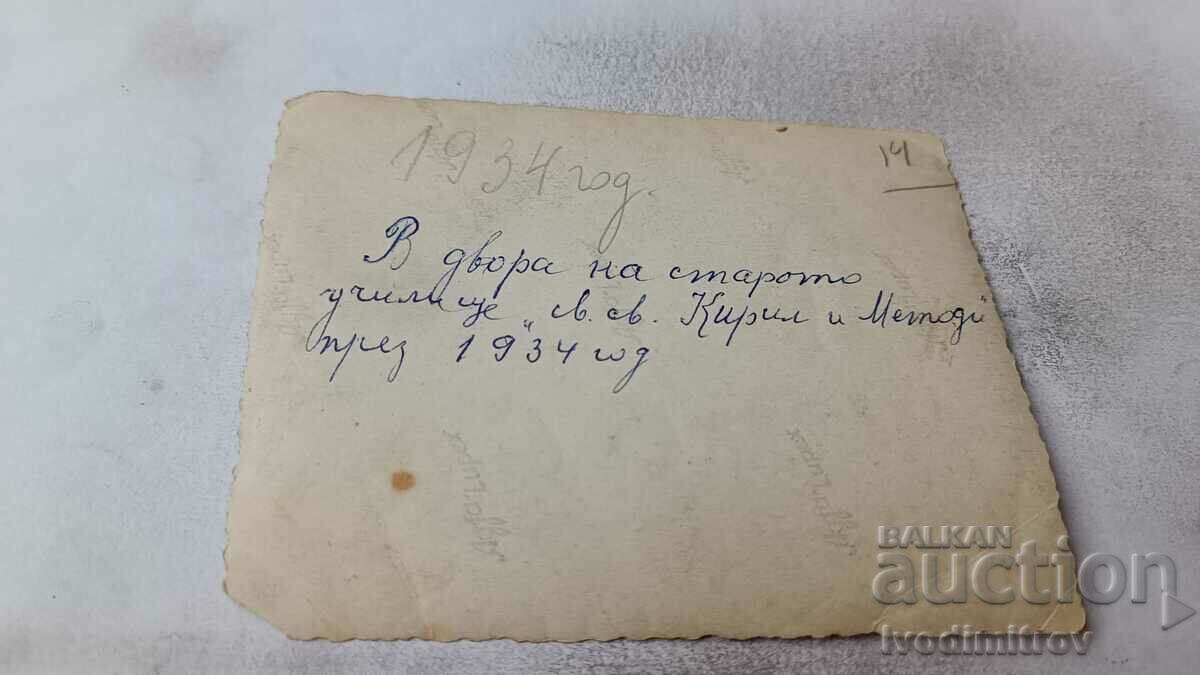 1934 год.
14
В двора на старото
училище „св. св. Кирил и Методи"
през 1934 год
BALKAN
auction
Ivodimitrov